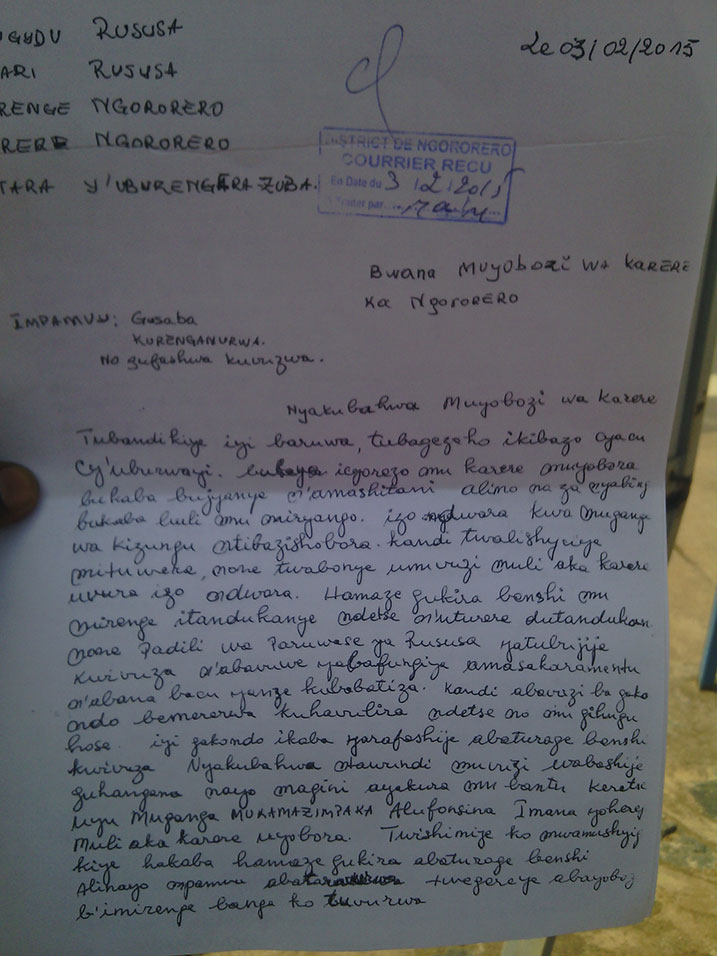 UGUDU RUSUSA
ARI RUSUSA
RENGE NGORORERO
RERE NGORORERO
TARA Y'UBURENGERAZUBA.
Le 03/02/2015
DISTRICT DE NGORORERO
COURRIER RECU
En Date du 3/2/2015
Traiter par
Bwana Muyobozi wa KARERE
Ka Ngororero
IMPAMVU: Gusaba
KURENGANURWA.
No gufashwa kuvuzwa.
Nyakubahwa Muyobozi wa karere
Tubandikiye iyi baruwa, tubagezeho ikibazo cyacu
cy'uburwayi. icyorezo mu karere muyobora
bukaba bujyanye n'amashitani alimo na za nyabing
bukaba buli mu miryango. izo ndwara kwa muganga
wa kizungu ntibazishobora. kandi twalishyiye
mituwera, none twabonye umuvuzi muli aka karere
uvura izo ndwara. Hamaze gukira benshi mu
mirenge itandukanye ndetse n'uturere dutandukan
none Padili wa Paruwase ya Rususa yatubujije
kwivuza n'abavuwe yabafungiye amasakaramentu
n'abana bacu yanze kubabatiza. Kandi abavuzi ba gako
ondo bemererwa kuhavulira ndetse no mu gihugu
hose. iyi gakondo ikaba yarafashije abaturage benshi
kwivuza Nyakubahwa ntawundi muvuzi wabashije
guhangana nayo magini ayakura mu bantu keretse
uyu Muganga MUKAMAZIMPAKA Alufonsina Imana yoherej
Muli aka karere uyobora. Twishimize ko mwamushyig
kiye hakaba hamaze gukira abaturage benshi
Aliyo mpamvu twegereye abayoboz
b'imirenge banga ko tuvurwa